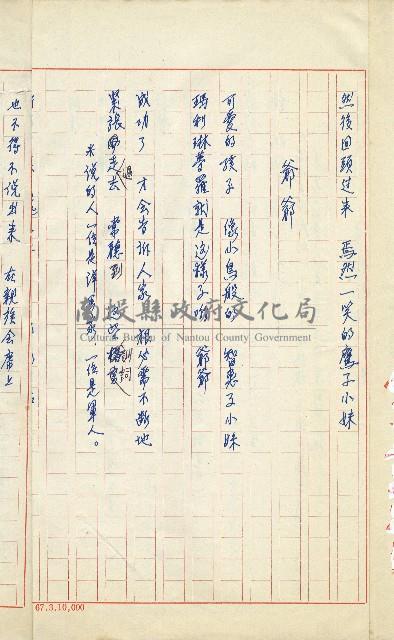 然後回頭过来 嫣然一笑的鷹子小妹
爺爺
可愛的孩子 像小鳥般的智惠子小妹
瑪利琳夢羅就是这樣子吻爺爺
成功了 才会告訴人家 相当需不断地
緊張 走过去 常聽到 这些 歌詞
来说的人 一位是洋 一位是軍人。
也不得不说出来 在親族会席上
南投縣政府文化局
Cultural Bureau of Nantou County Government
67.3.10,000